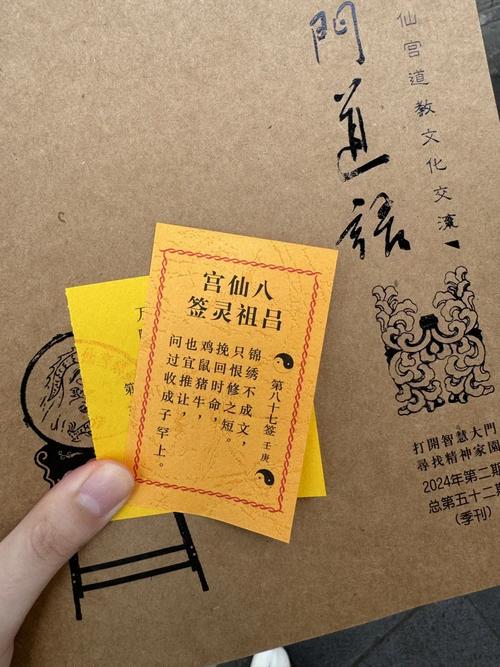 問道
仙宫道教文化交流
八仙宫
吕祖灵签
第八十七签 壬庚
锦绣不成文，
只恨修之短。
挽回时命，
鸡鼠猪牛，
也宜推让，
问过收成子罕上。
打開智慧大門
尋找精神家園
2024年第二期
总第五十二期
（季刊）
第